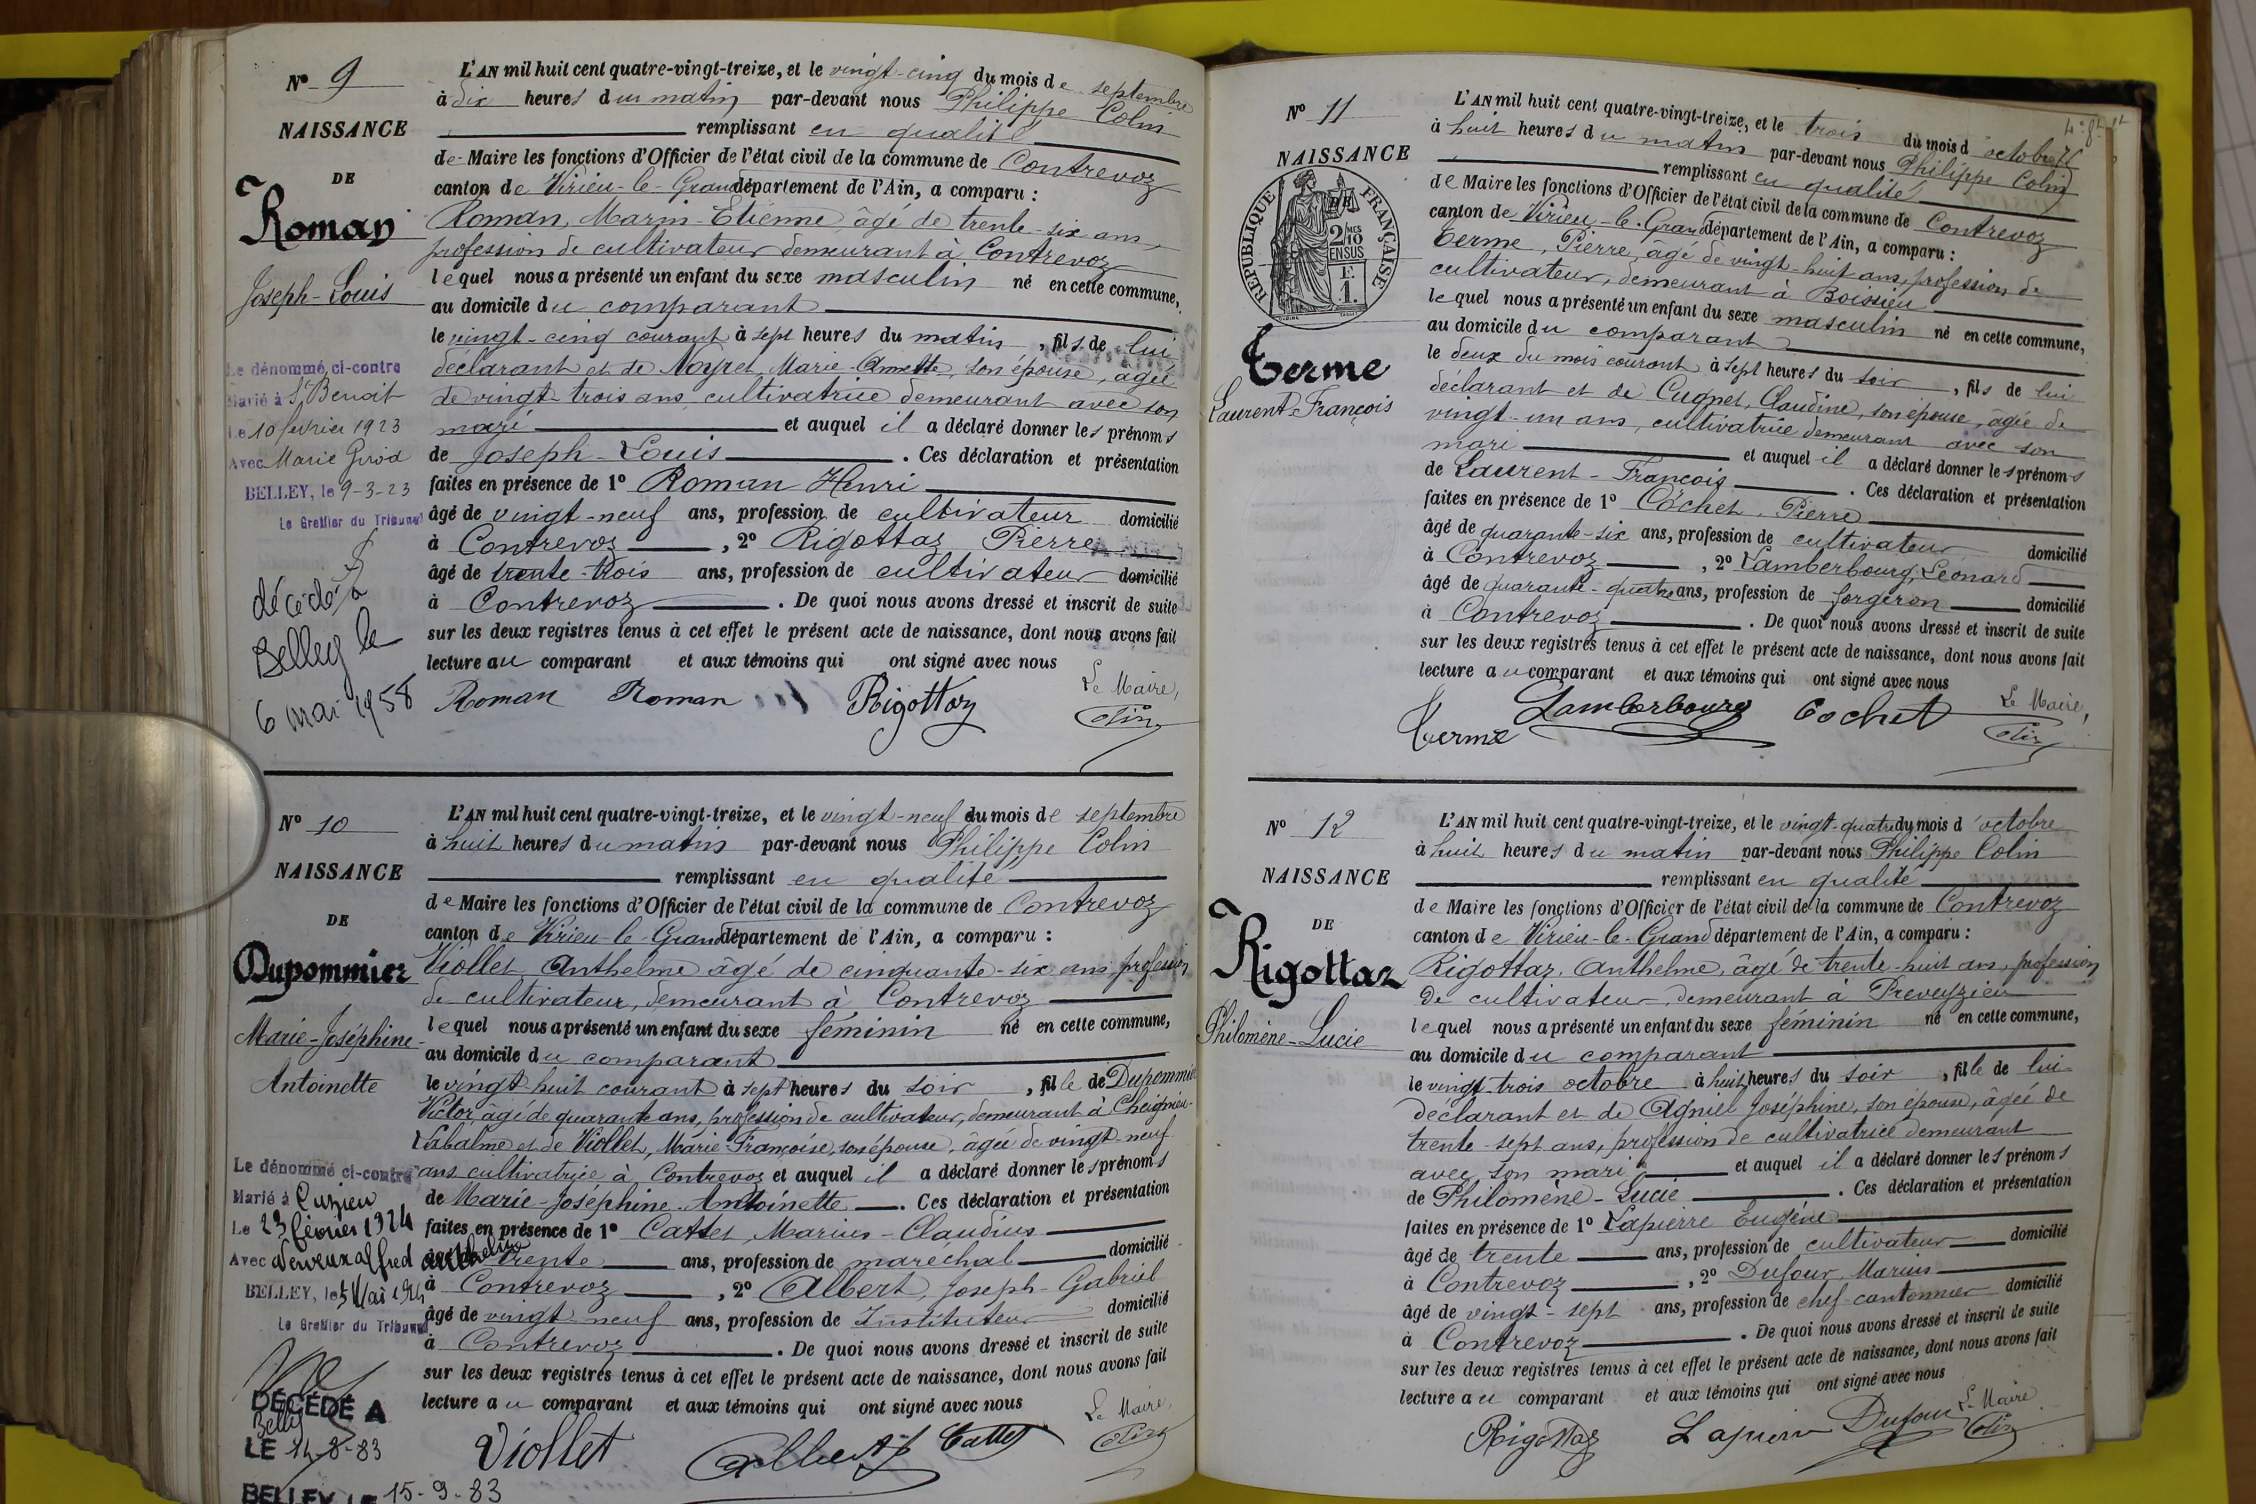 N° 9
NAISSANCE
DE
Roman
Joseph-Louis
Le dénommé ci-contre
Marié à St Benoit
Le 10 février 1923
Avec Marie Girod
BELLEY, le 9-3-23
Le Greffier du Tribunal
décédé à
Belley le
6 mai 1958
L'AN mil huit cent quatre-vingt-treize, et le vingt-cinq du mois de septembre
à dix heures du matin par-devant nous Philippe Colin
remplissant en qualité
de Maire les fonctions d'Officier de l'état civil de la commune de Contrevoz
canton de Virieu-le-Grand département de l'Ain, a comparu :
Roman, Marin-Etienne, âgé de trente-six ans,
profession de cultivateur demeurant à Contrevoz
lequel nous a présenté un enfant du sexe masculin né en cette commune,
au domicile du comparant
le vingt-cinq courant à sept heures du matin, fils de lui
déclarant et de Noyret, Marie-Annette, son épouse, âgée
de vingt-trois ans, cultivatrice demeurant avec son
mari et auquel il a déclaré donner les prénoms
de Joseph-Louis. Ces déclaration et présentation
faites en présence de 1° Roman Henri
âgé de vingt-neuf ans, profession de cultivateur domicilié
à Contrevoz, 2° Rigottaz Pierre
âgé de trente-trois ans, profession de cultivateur domicilié
à Contrevoz. De quoi nous avons dressé et inscrit de suite
sur les deux registres tenus à cet effet le présent acte de naissance, dont nous avons fait
lecture au comparant et aux témoins qui ont signé avec nous
Roman Roman Rigottaz Le Maire,
Colin
N° 10
NAISSANCE
DE
Dupommier
Marie-Joséphine-
Antoinette
Le dénommé ci-contre
Marié à Cuzieu
Le 23 février 1924
Avec
BELLEY, le 5 Mai 1924
Le Greffier du Tribunal
DÉCÉDÉ A
Belley
LE 14-8-83
BELLEY, LE 15-9-83
L'AN mil huit cent quatre-vingt-treize, et le vingt-neuf du mois de septembre
à huit heures du matin par-devant nous Philippe Colin
remplissant en qualité
de Maire les fonctions d'Officier de l'état civil de la commune de Contrevoz
canton de Virieu-le-Grand département de l'Ain, a comparu :
Viollet, Anthelme âgé de cinquante-six ans, profession
de cultivateur, demeurant à Contrevoz
lequel nous a présenté un enfant du sexe féminin né en cette commune,
au domicile du comparant
le vingt-huit courant à sept heures du soir, fille de Dupommier
Victor, âgé de quarante ans, profession de cultivateur, demeurant à Cheignieu-
Labalme et de Viollet, Marie-Françoise, son épouse, âgée de vingt-neuf
ans cultivatrice, à Contrevoz et auquel il a déclaré donner les prénoms
de Marie-Joséphine-Antoinette. Ces déclaration et présentation
faites en présence de 1° Cattet, Marius-Claudius
âgé de trente ans, profession de maréchal domicilié
à Contrevoz, 2° Albert, Joseph-Gabriel
âgé de vingt neuf ans, profession de Instituteur domicilié
à Contrevoz. De quoi nous avons dressé et inscrit de suite
sur les deux registres tenus à cet effet le présent acte de naissance, dont nous avons fait
lecture au comparant et aux témoins qui ont signé avec nous
Viollet Albert J Cattet Le Maire,
Colin
N° 11
NAISSANCE
DE
RÉPUBLIQUE FRANÇAISE
2/10 MES
EN SUS
F.
1.
Terme
Laurent-François
L'AN mil huit cent quatre-vingt-treize, et le trois du mois d'octobre
à huit heures du matin par-devant nous Philippe Colin
remplissant en qualité
de Maire les fonctions d'Officier de l'état civil de la commune de Contrevoz
canton de Virieu-le-Grand département de l'Ain, a comparu :
Terme, Pierre, âgé de vingt-huit ans, profession de
cultivateur, demeurant à Boissieu
lequel nous a présenté un enfant du sexe masculin né en cette commune,
au domicile du comparant
le deux du mois courant à sept heures du soir, fils de lui
déclarant et de Cugnet, Claudine, son épouse, âgée de
vingt-un ans, cultivatrice demeurant avec son
mari et auquel il a déclaré donner les prénoms
de Laurent-François. Ces déclaration et présentation
faites en présence de 1° Cochet, Pierre
âgé de quarante-six ans, profession de cultivateur domicilié
à Contrevoz, 2° Lamberbourg, Léonard
âgé de quarante-quatre ans, profession de forgeron domicilié
à Contrevoz. De quoi nous avons dressé et inscrit de suite
sur les deux registres tenus à cet effet le présent acte de naissance, dont nous avons fait
lecture au comparant et aux témoins qui ont signé avec nous
Terme Lamberbourg Cochet Le Maire,
Colin
N° 12
NAISSANCE
DE
Rigottaz
Philomène-Lucie
L'AN mil huit cent quatre-vingt-treize, et le vingt-quatre du mois d'octobre
à huit heures du matin par-devant nous Philippe Colin
remplissant en qualité
de Maire les fonctions d'Officier de l'état civil de la commune de Contrevoz
canton de Virieu-le-Grand département de l'Ain, a comparu :
Rigottaz, Anthelme, âgé de trente-huit ans, profession
de cultivateur demeurant à Preveyzieu
lequel nous a présenté un enfant du sexe féminin né en cette commune,
au domicile du comparant
le vingt-trois octobre à huit heures du soir, fille de lui
déclarant et de Agniel Joséphine, son épouse, âgée de
trente-sept ans, profession de cultivatrice demeurant
avec son mari et auquel il a déclaré donner les prénoms
de Philomène-Lucie. Ces déclaration et présentation
faites en présence de 1° Lapierre Eugène
âgé de trente ans, profession de cultivateur domicilié
à Contrevoz, 2° Dufour, Marius
âgé de vingt-sept ans, profession de chef-cantonnier domicilié
à Contrevoz. De quoi nous avons dressé et inscrit de suite
sur les deux registres tenus à cet effet le présent acte de naissance, dont nous avons fait
lecture au comparant et aux témoins qui ont signé avec nous
Rigottaz Lapierre Dufour Le Maire
Colin